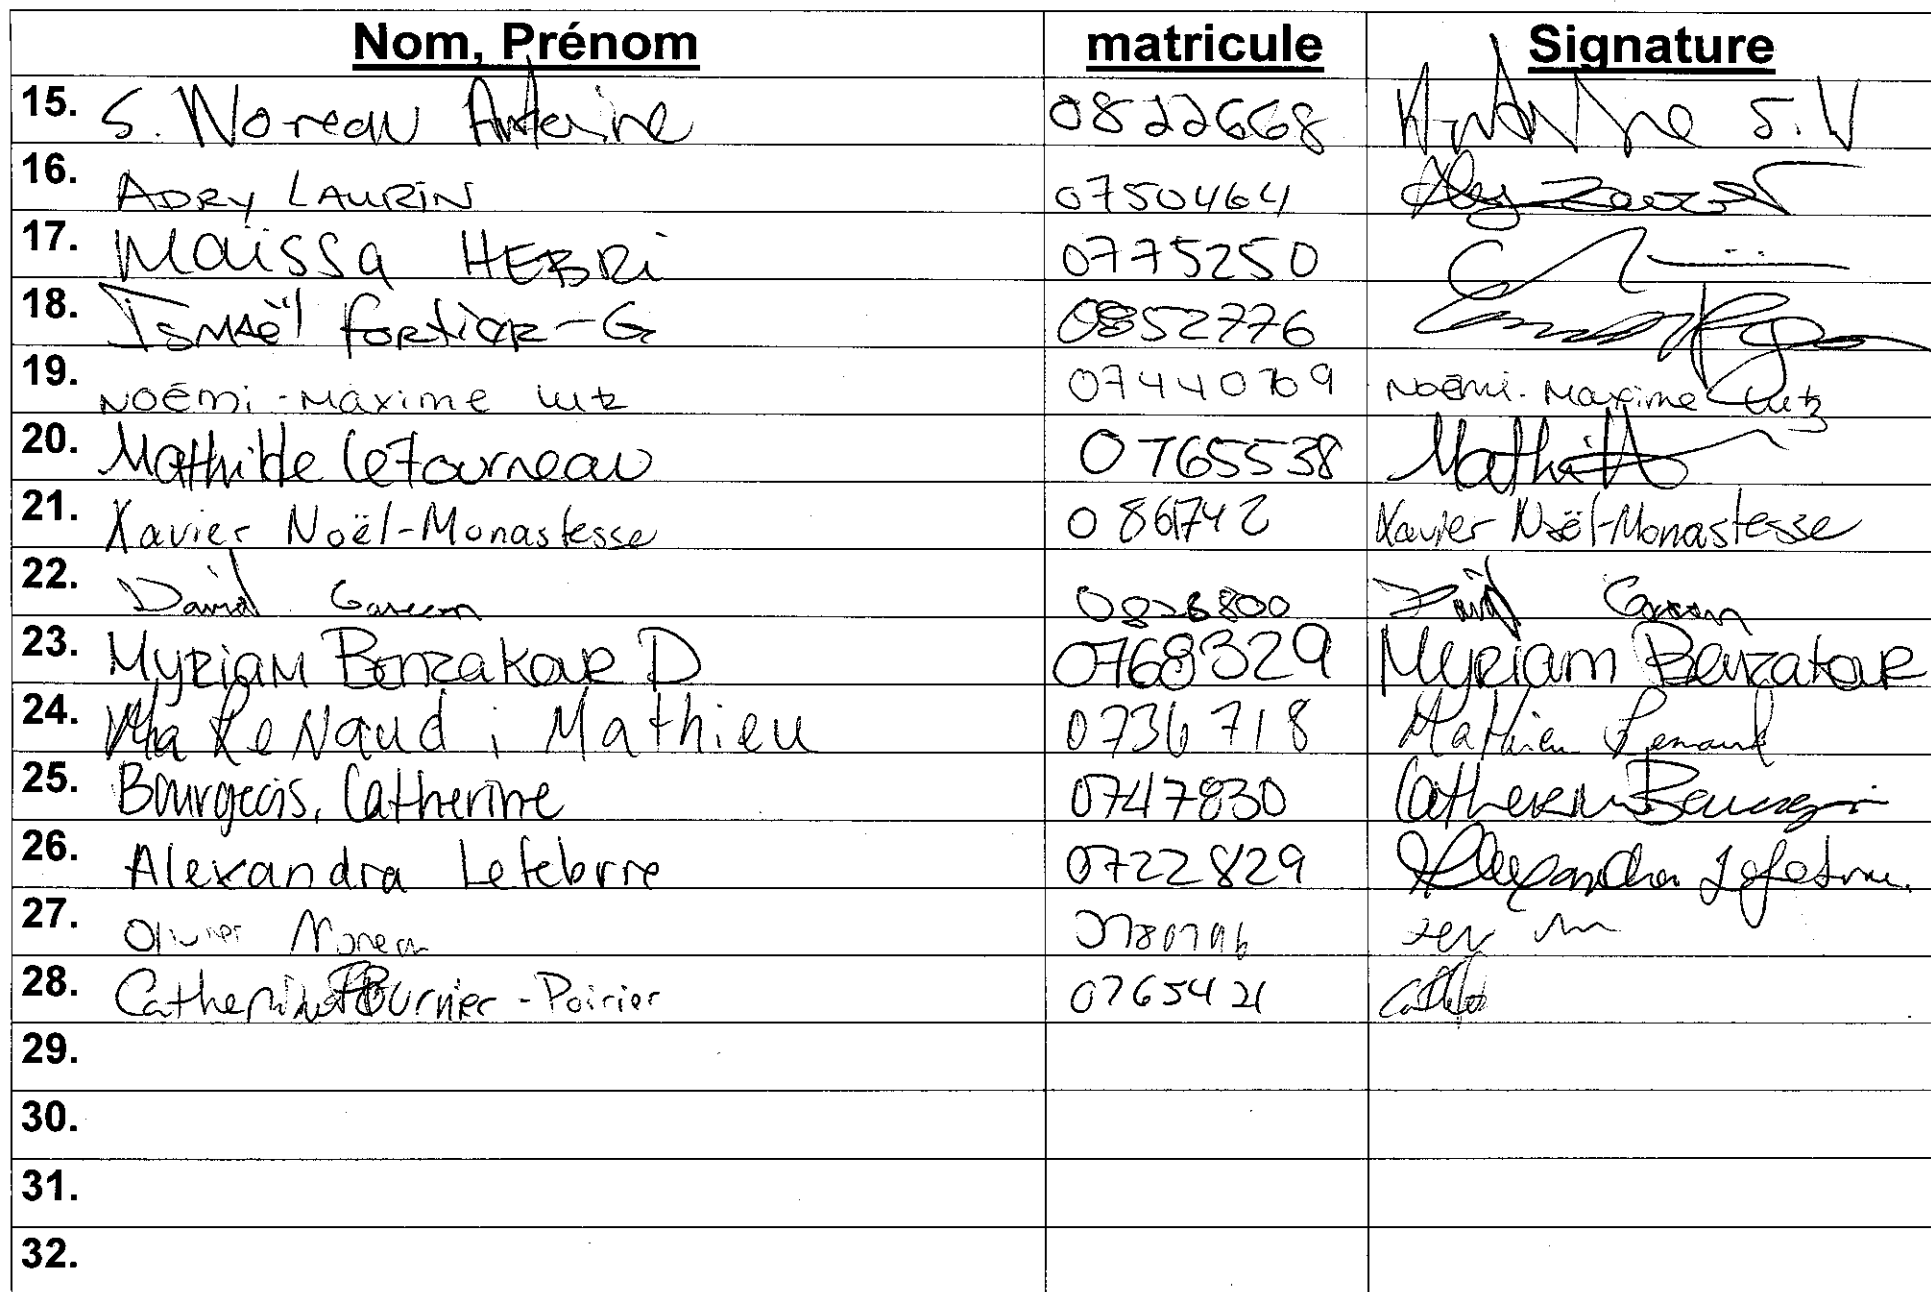 Nom, Prénom matricule Signature
15. S. Noreau Antoine 0822668 Antoine S.N
16. ADRY LAURIN 0750464
17. Maïssa HEBRi 0775250
18. Ismaël Fortier-G 0852776
19. Noémi-Maxime Lutz 0744079 Noémi-Maxime Lutz
20. Mathilde Letourneau 0765538
21. Xavier Noël-Monastesse 0861742 Xavier Noël-Monastesse
22. David David
23. Myriam Benzakour D 0768329 Myriam Benzakour
24. Renaud, Mathieu 0736718 Mathieu Renaud
25. Bourgeois, Catherine 0747830 Catherine Bourgeois
26. Alexandra Lefebvre 0722829 Alexandra Lefebvre
27. Olivier
28. Catherine Fournier-Poirier 0765421
29.
30.
31.
32.